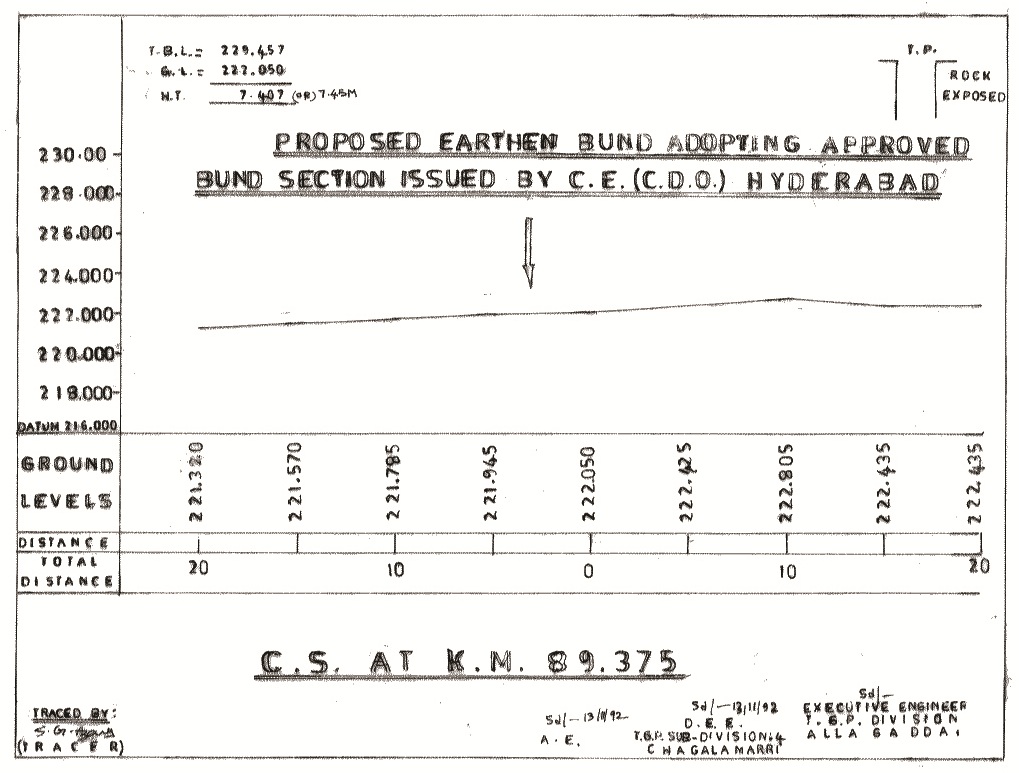 T.B.L.= 229.457
G.L.= 222.050
H.T. 7.407 (OR) 7.45M
T.P.
ROCK
EXPOSED
PROPOSED EARTHEN BUND ADOPTING APPROVED
BUND SECTION ISSUED BY C.E.(C.D.O.) HYDERABAD
230.00
228.000
226.000
224.000
222.000
220.000
218.000
DATUM 216.000
GROUND LEVELS
221.320 221.570 221.785 221.945 222.050 222.425 222.805 222.435 222.435
DISTANCE
TOTAL DISTANCE
20 10 0 10 20
C.S. AT K.M. 89.375
TRACED BY:
S.G.
(TRACER)
Sd/-13/11/92
A.E.
Sd/-13/11/92
D.E.E.
T.G.P. SUB-DIVISION:4
CHAGALAMARRI
Sd/-
EXECUTIVE ENGINEER
T.G.P. DIVISION
ALLAGADDA.